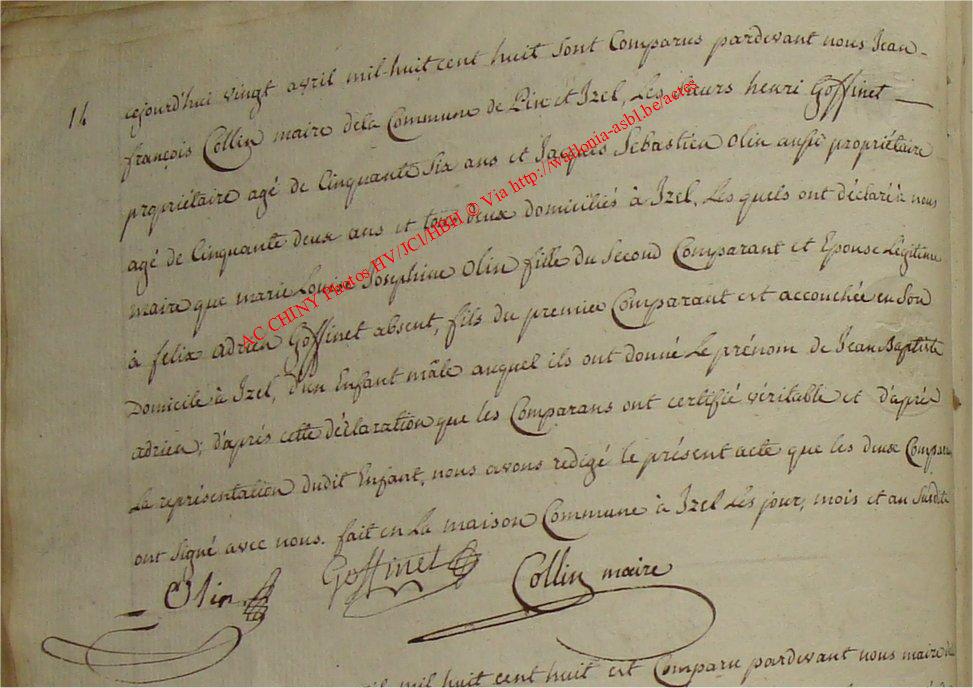 14
cejourd'hui vingt avril mil-huit cent huit sont Comparus pardevant nous Jean-
françois Collin maire dela Commune de Pin et Izel, Les sieurs henri Goffinet
propriétaire agé de Cinquante Six ans et Jacques Sebastien Olin aussi propriétaire
agé de Cinquante deux ans et tous deux domiciliés à Izel, Les quels ont déclaré à nous
maire que marie Louise Josephine Olin fille du Second Comparant et Epouse Légitime
à felix adrien Goffinet absent, fils du premier Comparant est accouchée en Son
Domicile à Izel, d'un Enfant mâle auquel ils ont donné Le prénom de Jean Baptiste
adrien; d'après cette déclaration que les Comparans ont certifié véritable et d'après
La représentation dudit Enfant, nous avons redigé le présent acte que les deux Compara
ont Signé avec nous. fait en La maison Commune à Izel Les jour, mois et an Susdits
Olin Goffinet Collin maire
mil huit cent huit est Comparu pardevant nous maire
AC CHINY Photos HV/JCl/HBH © Via http://wallonia-asbl.be/actes